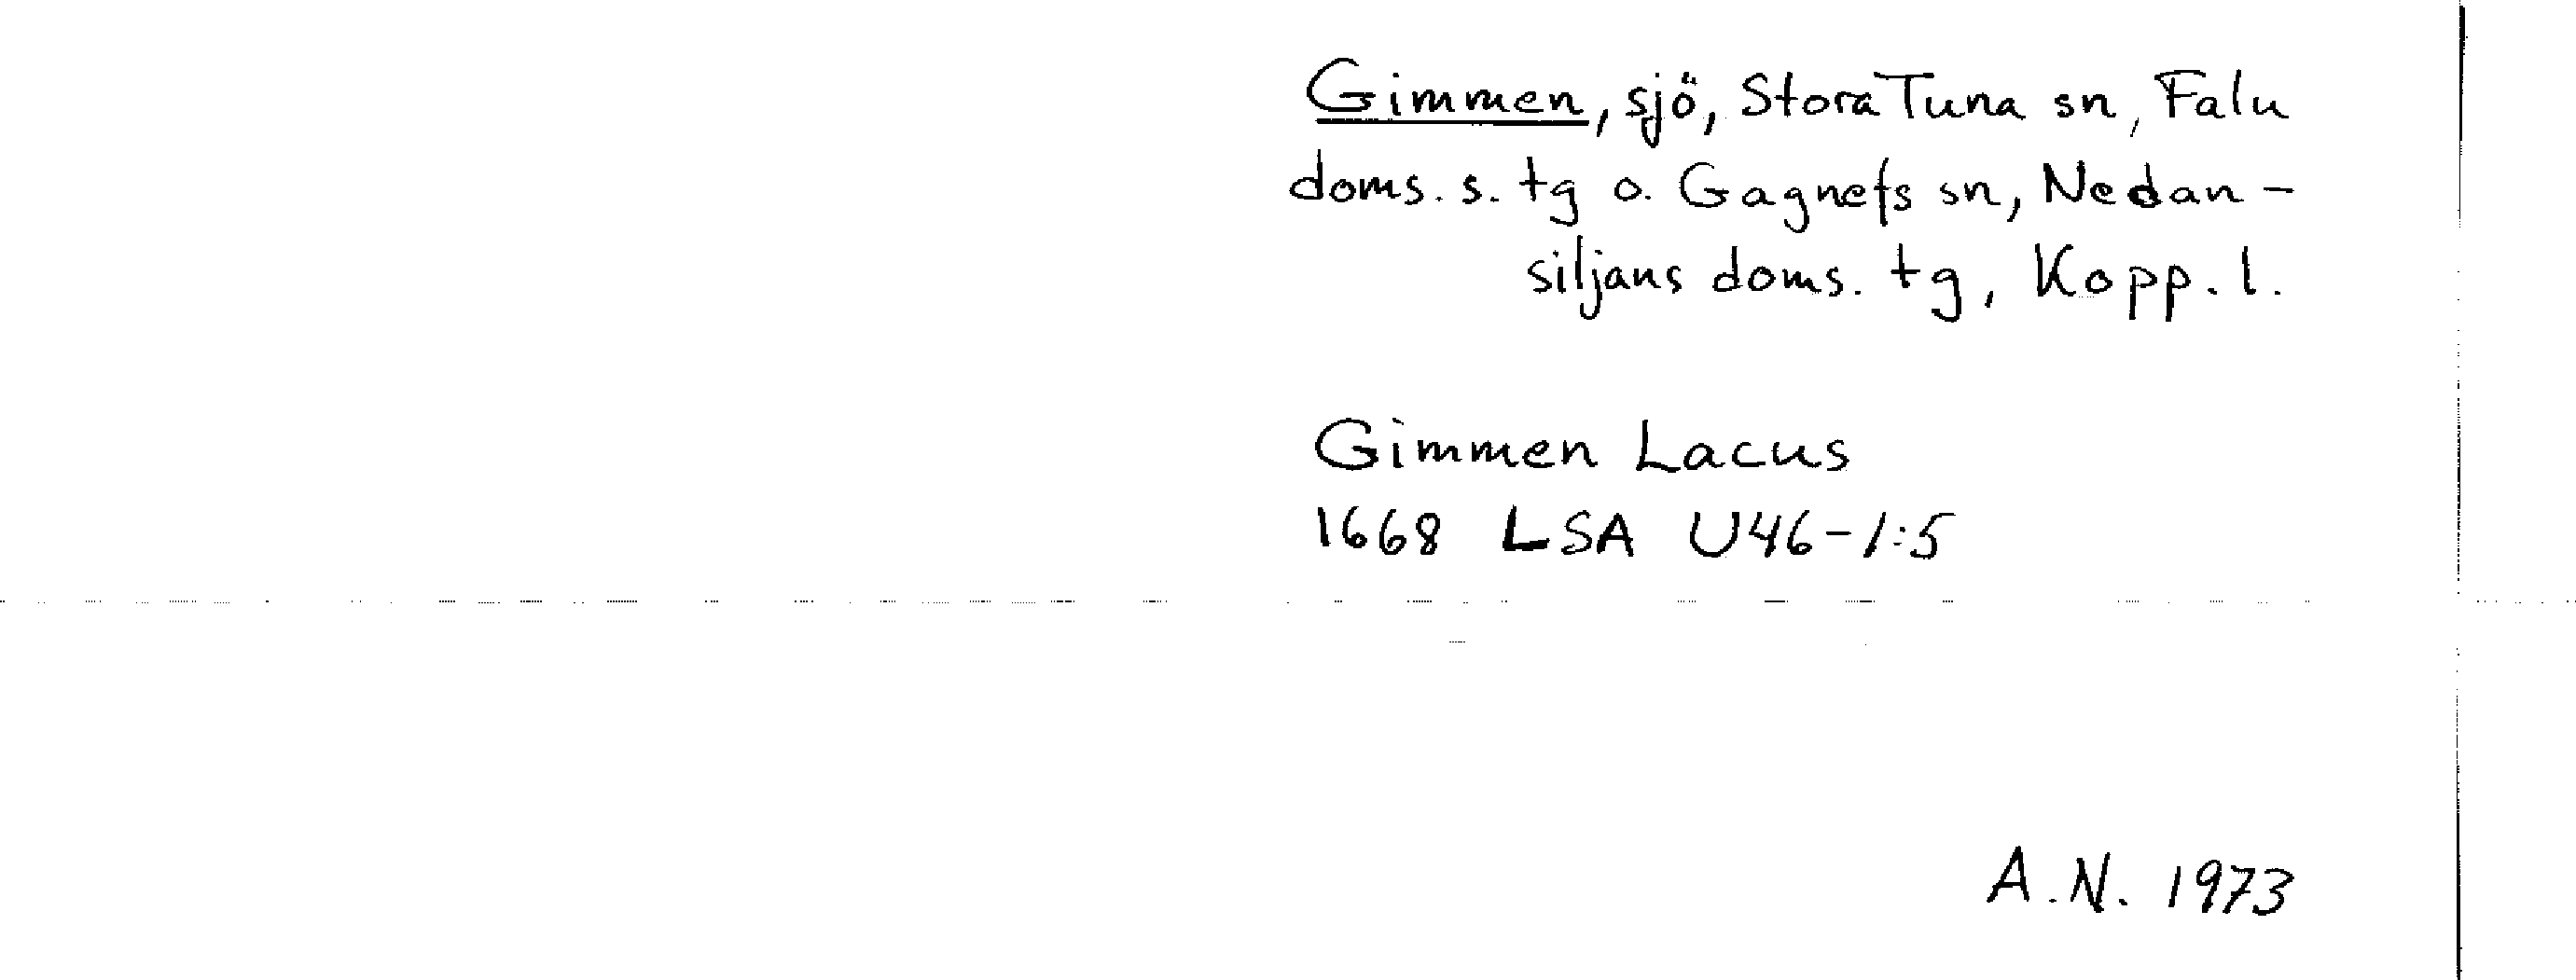 Gimmen, sjö, Stora Tuna sn, Falu
doms. s. tg o. Gagnefs sn, Nedan-
siljans doms. tg, Kopp. l.
Gimmen Lacus
1668 LSA U46-1:5
A.N. 1973